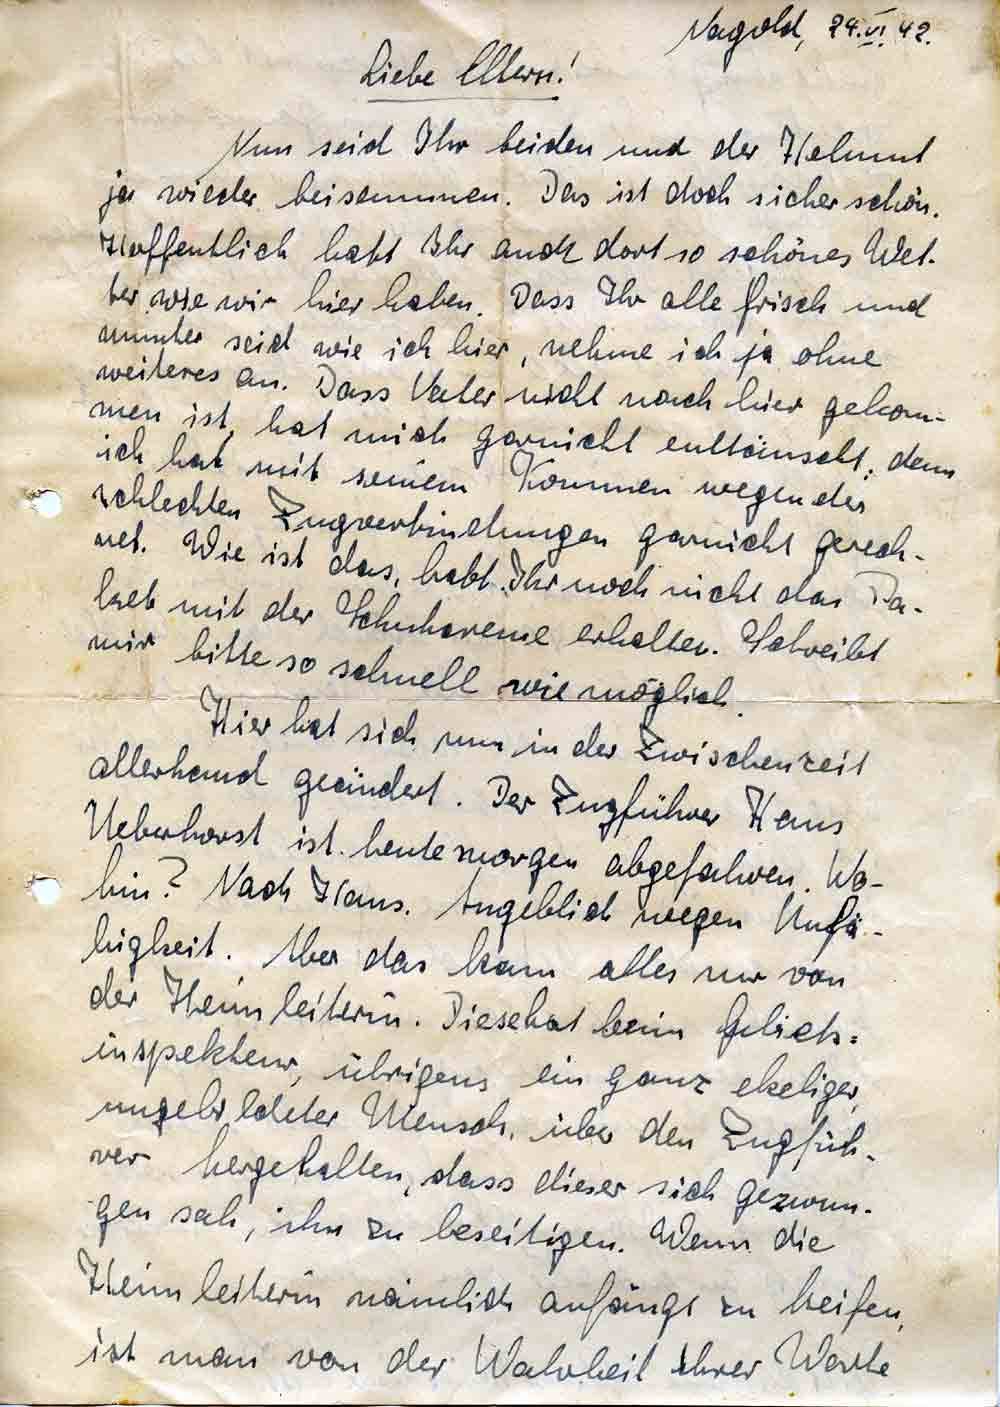 Nagold, 24.VI.42.
Liebe Eltern!
Nun seid Ihr beiden und der Helmut
ja wieder beisammen. Das ist doch sicher schön.
Hoffentlich habt Ihr auch dort so schönes Wet-
ter wie wir hier haben. Dass Ihr alle frisch und
munter seid wie ich hier, nehme ich ja ohne
weiteres an. Dass Vater nicht nach hier gekom-
men ist, hat mich garnicht enttäuscht, denn
ich hab mit seinem Kommen wegen der
schlechten Zugverbindungen garnicht gerech-
net. Wie ist das, habt Ihr noch nicht das Pa-
ket mit der Schuhcreme erhalten. Schreibt
mir bitte so schnell wie möglich.
Hier hat sich nun in der Zwischenzeit
allerhand geändert. Der Zugführer Hans
Ueberhorst ist heute morgen abgefahren. Wo-
hin? Nach Haus. Angeblich wegen Unfä-
higkeit. Aber das kam alles nur von
der Heimleiterin. Diese hat beim
inspekteur, übrigens ein ganz ekeliger,
ungebildeter Mensch, über den Zugfüh-
rer hergehalten, dass dieser sich gezwun-
gen sah, ihn zu beseitigen. Wenn die
Heimleiterin nämlich anfängt zu keifen,
ist man von der Wahrheit ihrer Worte